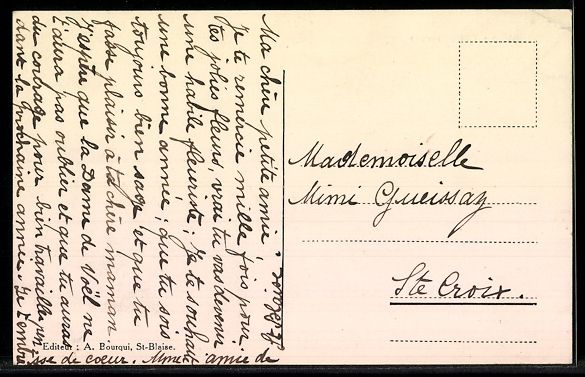 Ma chère petite amie,
Je te remercie mille fois pour
tes jolies fleurs, vrai tu vas devenir
une habile fleuriste; Je te souhaite
une bonne année; que tu sois
toujours bien sage et que tu
fasse plaisir à ta chère maman
J'espère que la Dame de Noël ne
t'aura pas oublier et que tu auras
du courage pour bien travailler
dans la prochaine année. Je t'embra
sse de coeur. amie de
Mademoiselle
Mimi Gueissaz
Ste Croix.
Editeur : A. Bourqui, St-Blaise.